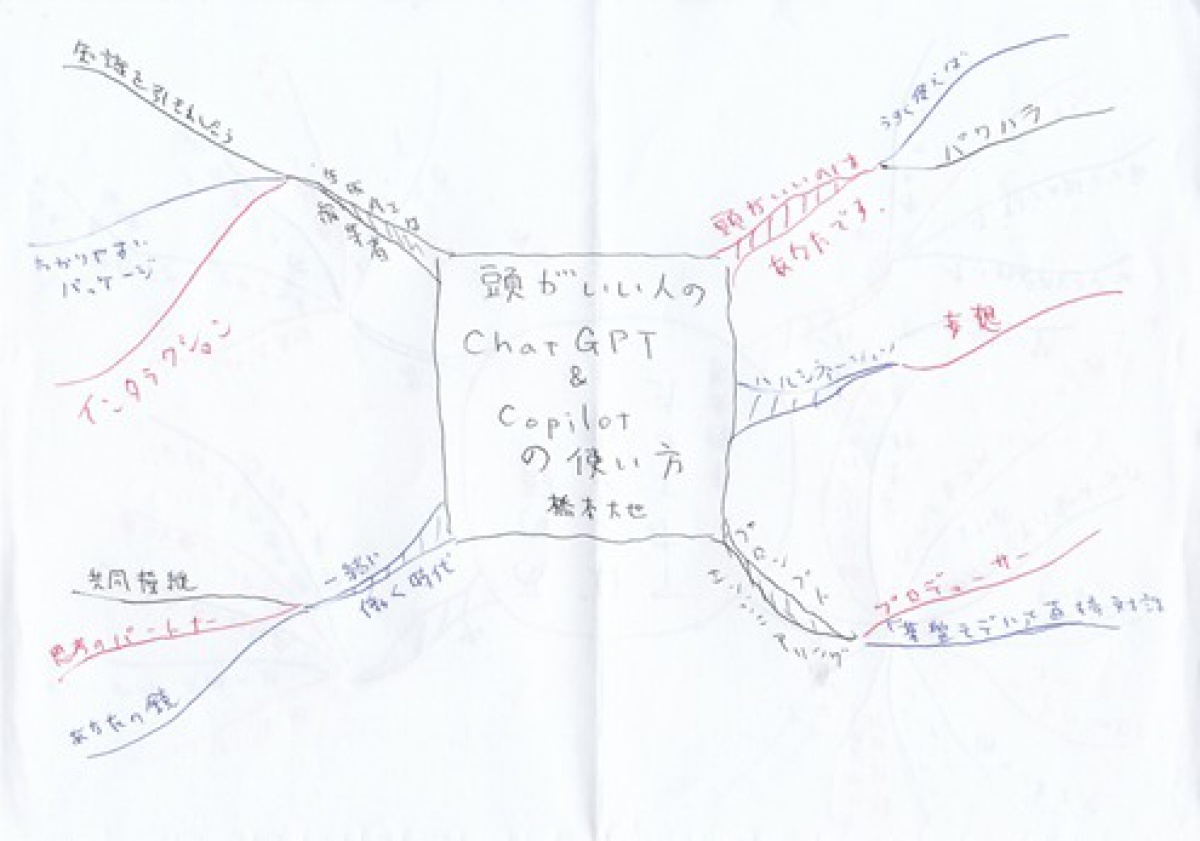 頭がいい人の
ChatGPT
&
Copilot
の使い方
橋本大也
頭がいいのは
あなたです.
うまく使えば
パワハラ
ハルシネーション
妄想
プロンプト
エンジニアリング
プロデューサー
基盤モデルと直接対話
編集者
知識を引きだそう
わかりやすい
パッケージ
インタラクション
一緒に
働く時代
共同操縦
思考のパートナー
あなたの鏡